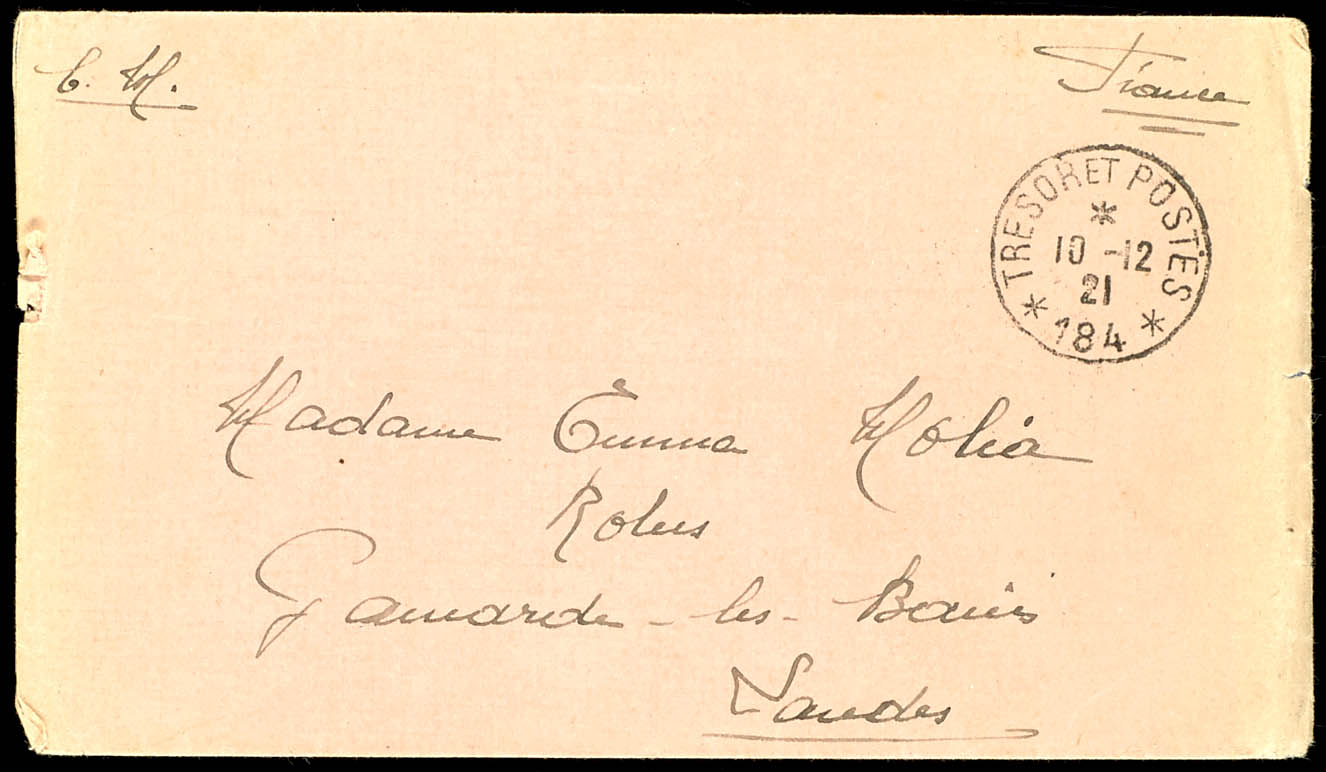 C. M.
France
TRESOR ET POSTES
*
10 -12
21
* 184 *
Madame Emma Molia
Gamarde-les-Bains
Landes